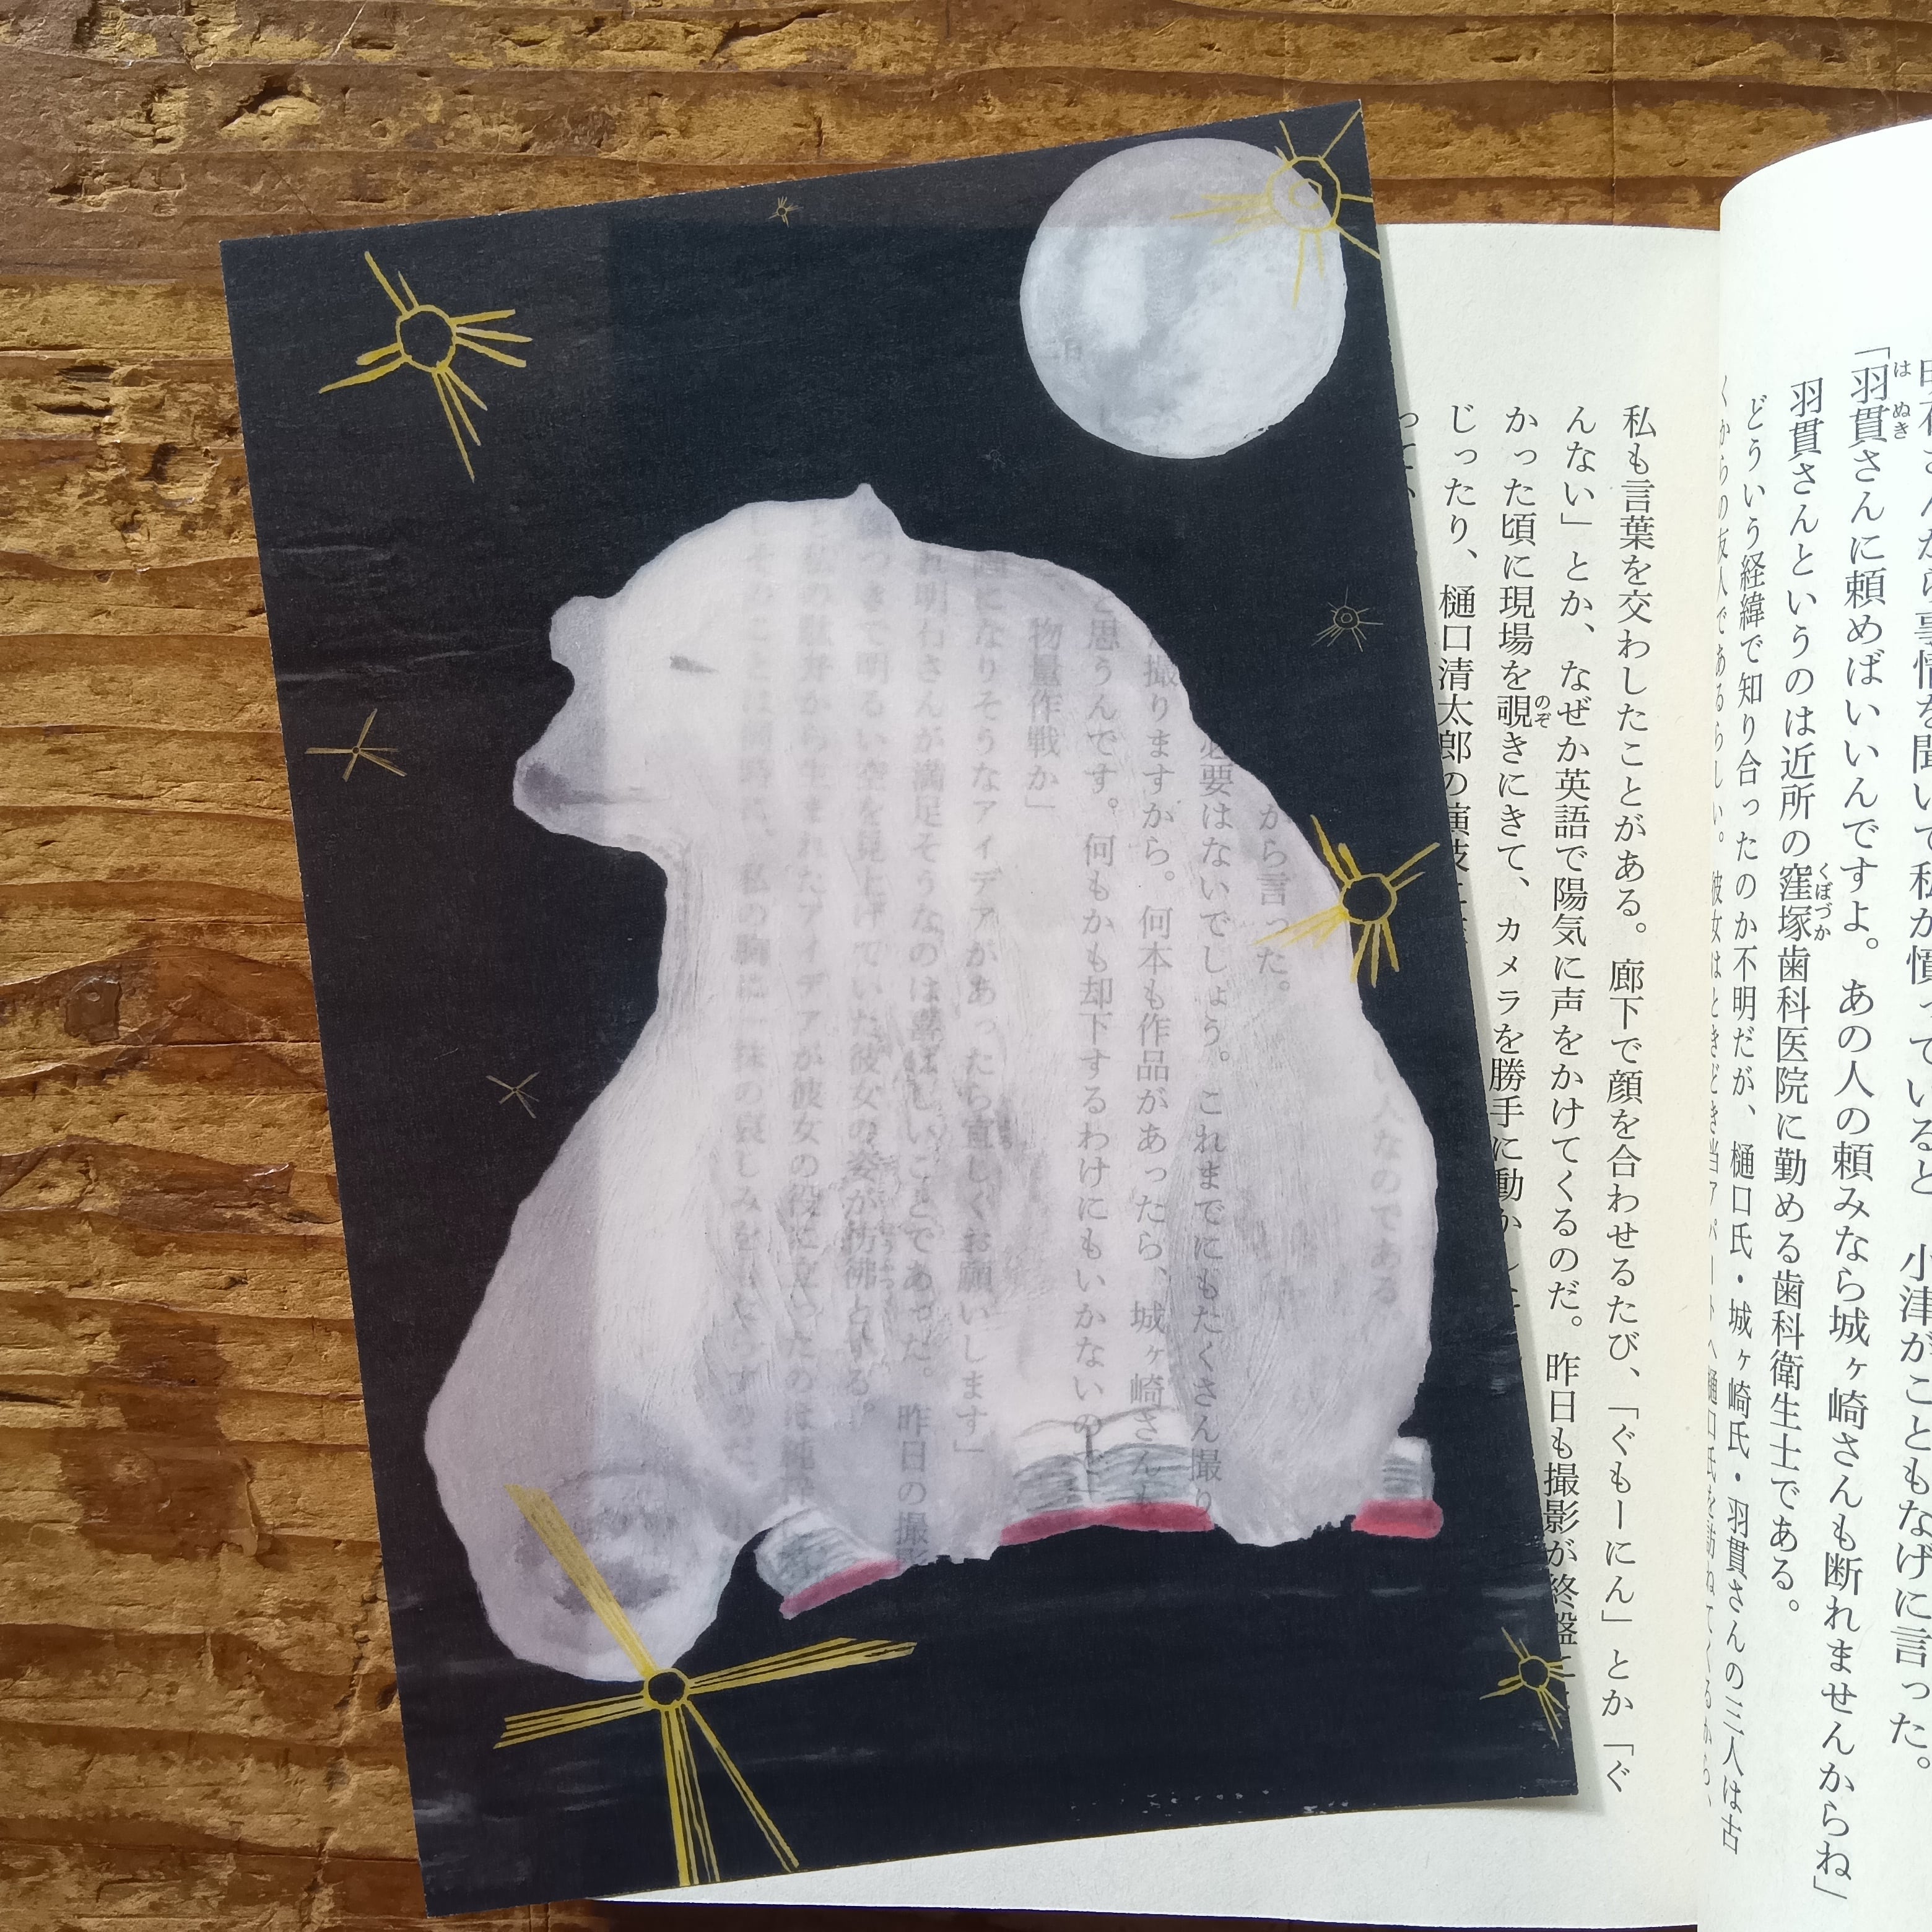 「羽貫さんに頼めばいいんですよ。あの人の頼みなら城ヶ崎さんも断れませんからね」
羽貫さんというのは近所の窪塚歯科医院に勤める歯科衛生士である。
どういう経緯で知り合ったのか不明だが、樋口氏・城ヶ崎氏・羽貫さんの三人は古
くからの友人であるらしい。彼女はときどき当アパートへ樋口氏を訪ねてくるから、
私も言葉を交わしたことがある。廊下で顔を合わせるたび、「ぐもーにん」とか「ぐ
んない」とか、なぜか英語で陽気に声をかけてくるのだ。昨日も撮影が終盤に
かった頃に現場を覗きにきて、カメラを勝手に動か
じったり、樋口清太郎の演技に
人なのである
から言った。
必要はないでしょう。これまでにもたくさん撮り
撮りますから。何本も作品があったら、城ヶ崎さんも
と思うんです。何もかも却下するわけにもいかないので
物量作戦か」
になりそうなアイデアがあったら宜しくお願いします」
明石さんが満足そうなのは喜ばしいことであった。昨日の撮
つきで明るい空を見上げていた彼女の姿が彷彿とする。
から生まれたアイデアが彼女の役に立ったのは純粋
私の胸に一抹の哀しみを